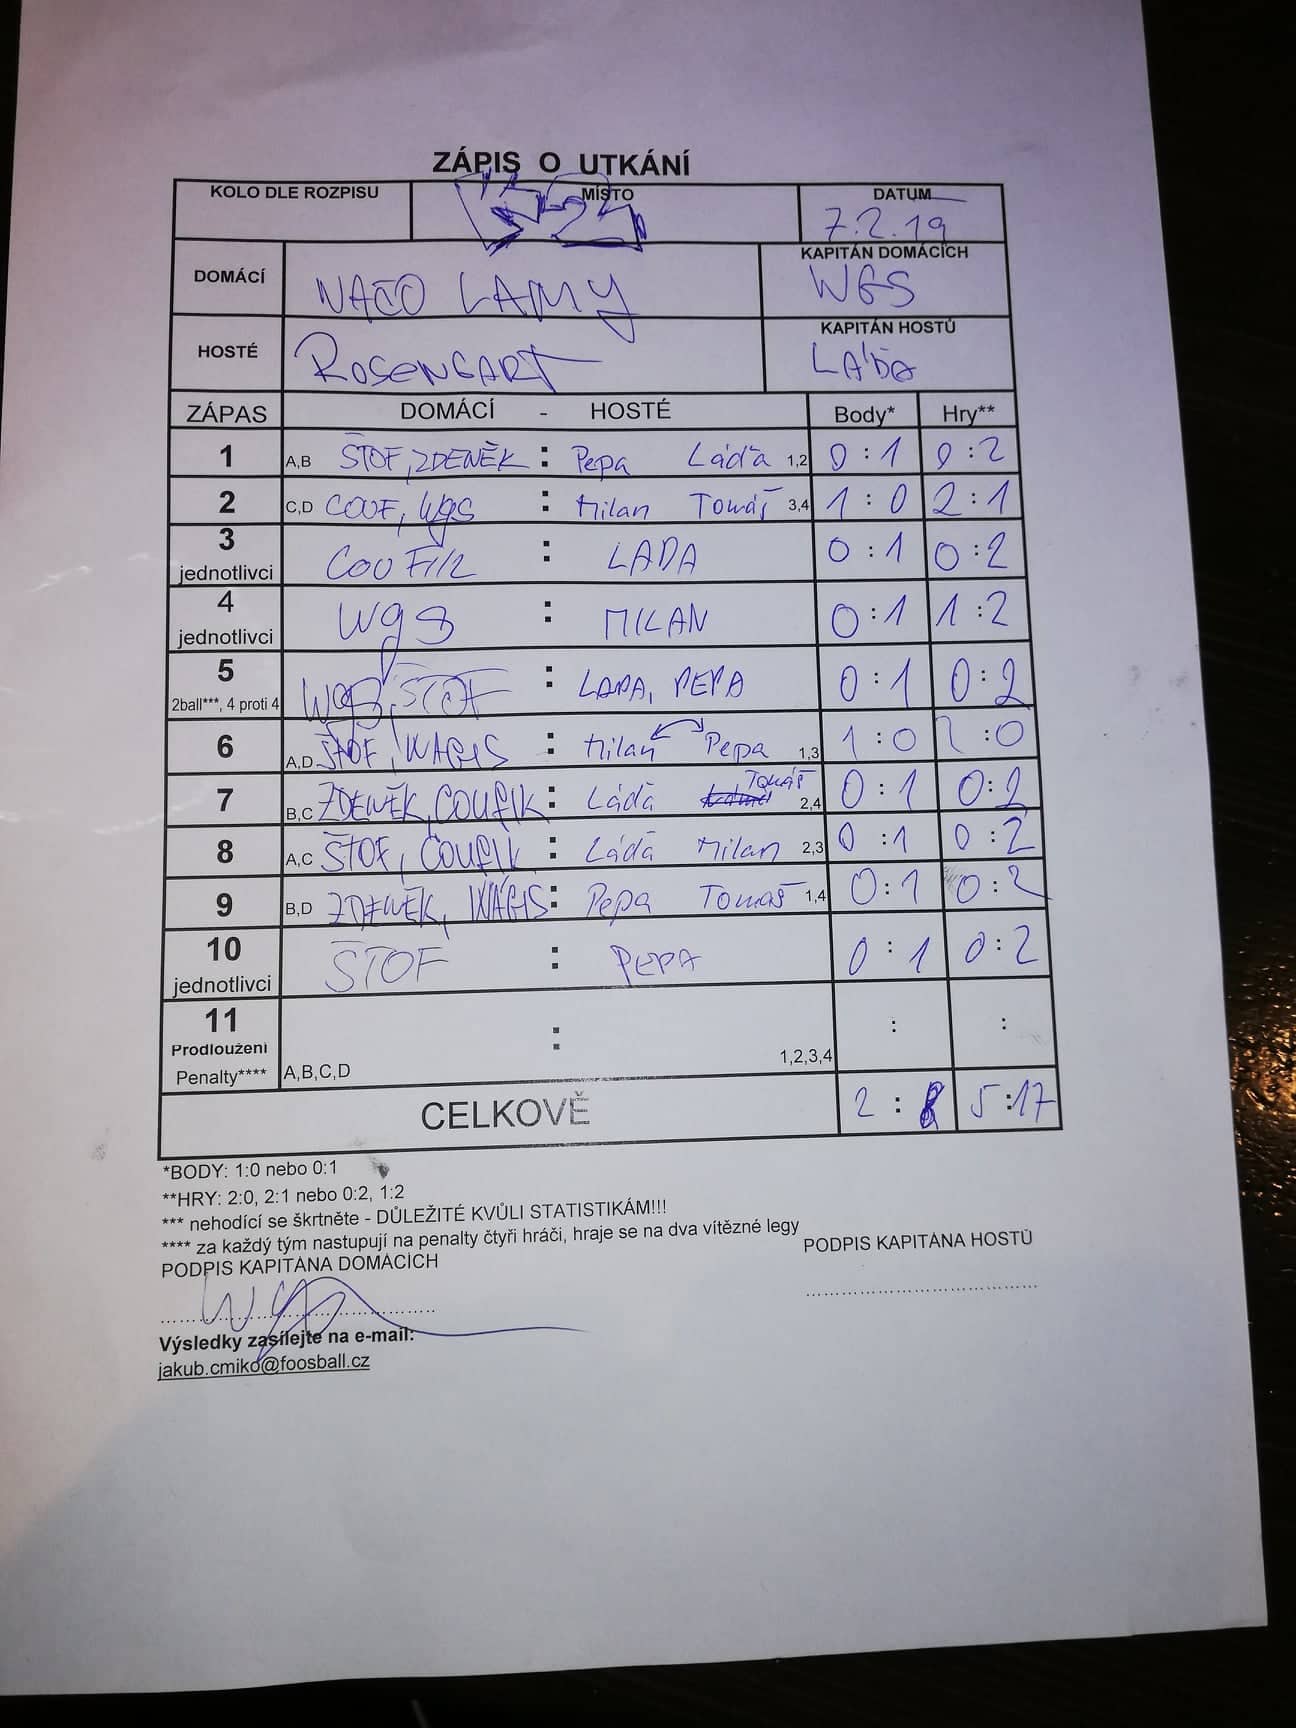 ZÁPIS O UTKÁNÍ
KOLO DLE ROZPISU MÍSTO DATUM
7.2.19
DOMÁCÍ NAČO LAMY KAPITÁN DOMÁCÍCH WGS
HOSTÉ ROSENGART KAPITÁN HOSTŮ LÁĎA
ZÁPAS DOMÁCÍ - HOSTÉ Body* Hry**
1 A,B ŠTOF, ZDENĚK : Pepa Láďa 1,2 0 : 1 0 : 2
2 C,D COUF, Wgs : Milan Tomáš 3,4 1 : 0 2 : 1
3 jednotlivci COUFIK : LADA 0 : 1 0 : 2
4 jednotlivci Wgs : MILAN 0 : 1 1 : 2
5 2ball***, 4 proti 4 WGS, ŠTOF : LADA, PEPA 0 : 1 0 : 2
6 A,D ŠTOF, WAGIS : Milan Pepa 1,3 1 : 0 2 : 0
7 B,C ZDENĚK, COUFIK : Láďa Tomáš 2,4 0 : 1 0 : 2
8 A,C ŠTOF, COUFIK : Láďa Milan 2,3 0 : 1 0 : 2
9 B,D ZDENĚK, WAGIS : Pepa Tomáš 1,4 0 : 1 0 : 2
10 jednotlivci ŠTOF : PEPA 0 : 1 0 : 2
11 : : :
Prodloužení
Penalty**** A,B,C,D 1,2,3,4
CELKOVĚ 2 : 8 5 : 17
*BODY: 1:0 nebo 0:1
**HRY: 2:0, 2:1 nebo 0:2, 1:2
*** nehodící se škrtněte - DŮLEŽITÉ KVŮLI STATISTIKÁM!!!
**** za každý tým nastupují na penalty čtyři hráči, hraje se na dva vítězné legy
PODPIS KAPITÁNA DOMÁCÍCH PODPIS KAPITÁNA HOSTŮ
Výsledky zasílejte na e-mail:
jakub.cmiko@foosball.cz